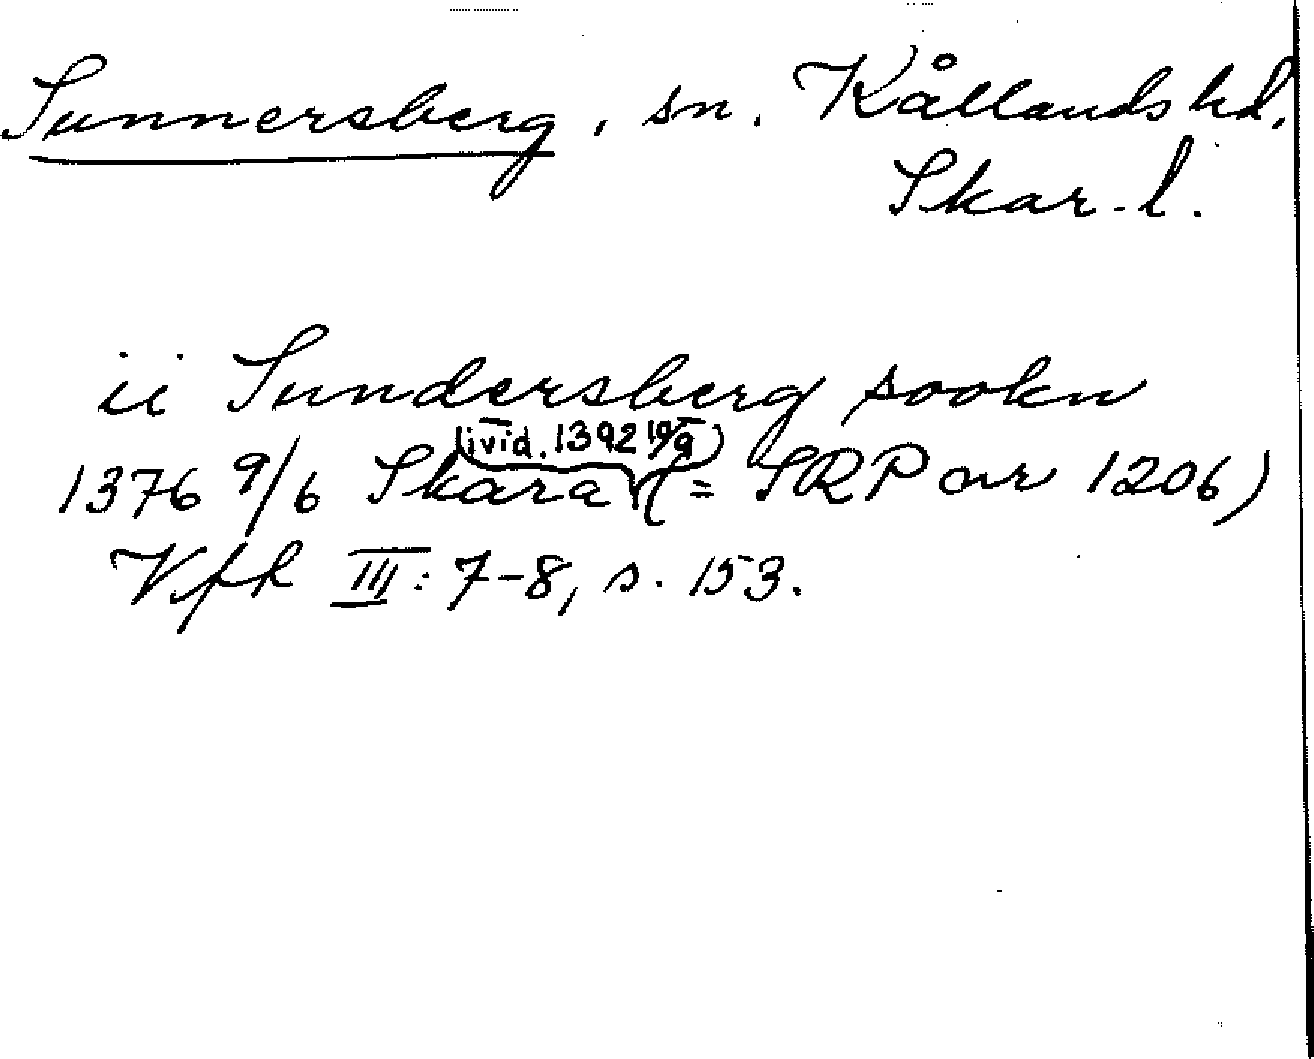 Sunnersberg, sn. Kållands hd.
Skar. l.
ii Sundersberg sookn
(ivid. 1392 19/9)
1376 9/6 Skara (= SRP nr 1206)
Vfk III: 7-8, s. 153.